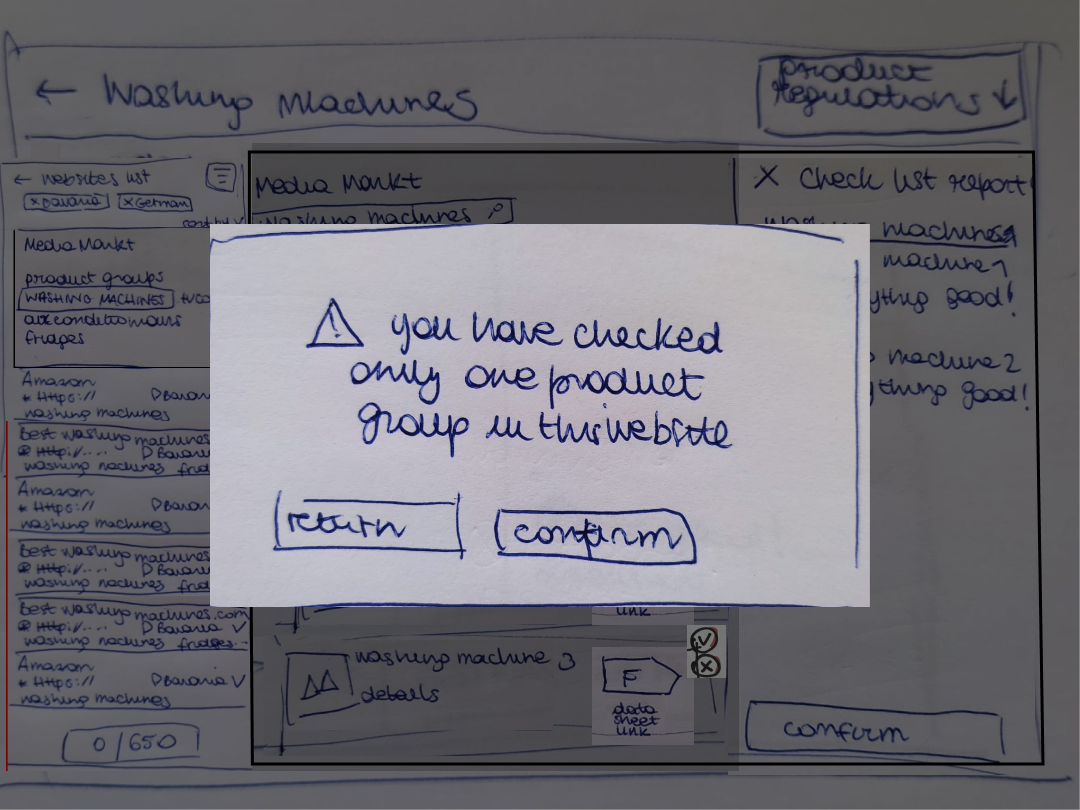 ← Washing Machines
product
regulations ↓
← websites list
x Bavaria
x German
sort by ∨
Media Markt
product groups
WASHING MACHINES
airconditionairs
fridges
Amazon
* Https://
Bavaria
washing machines
Best washing machines
Http://....
Bavaria
washing machines
Amazon
* Https://
Bavaria
washing machines
Best washing machines
Http://....
Bavaria
washing machines
Best washing machines.com
Http://....
Bavaria ∨
washing machines fridges..
Amazon
* Https://
Bavaria ∨
washing machines
0/650
Media Markt
washing machines
⚠ you have checked
only one product
group in this website
return
confirm
link
washing machine 3
details
F
data
sheet
link
X Check list report
machines
machine 1
good!
machine 2
good!
confirm